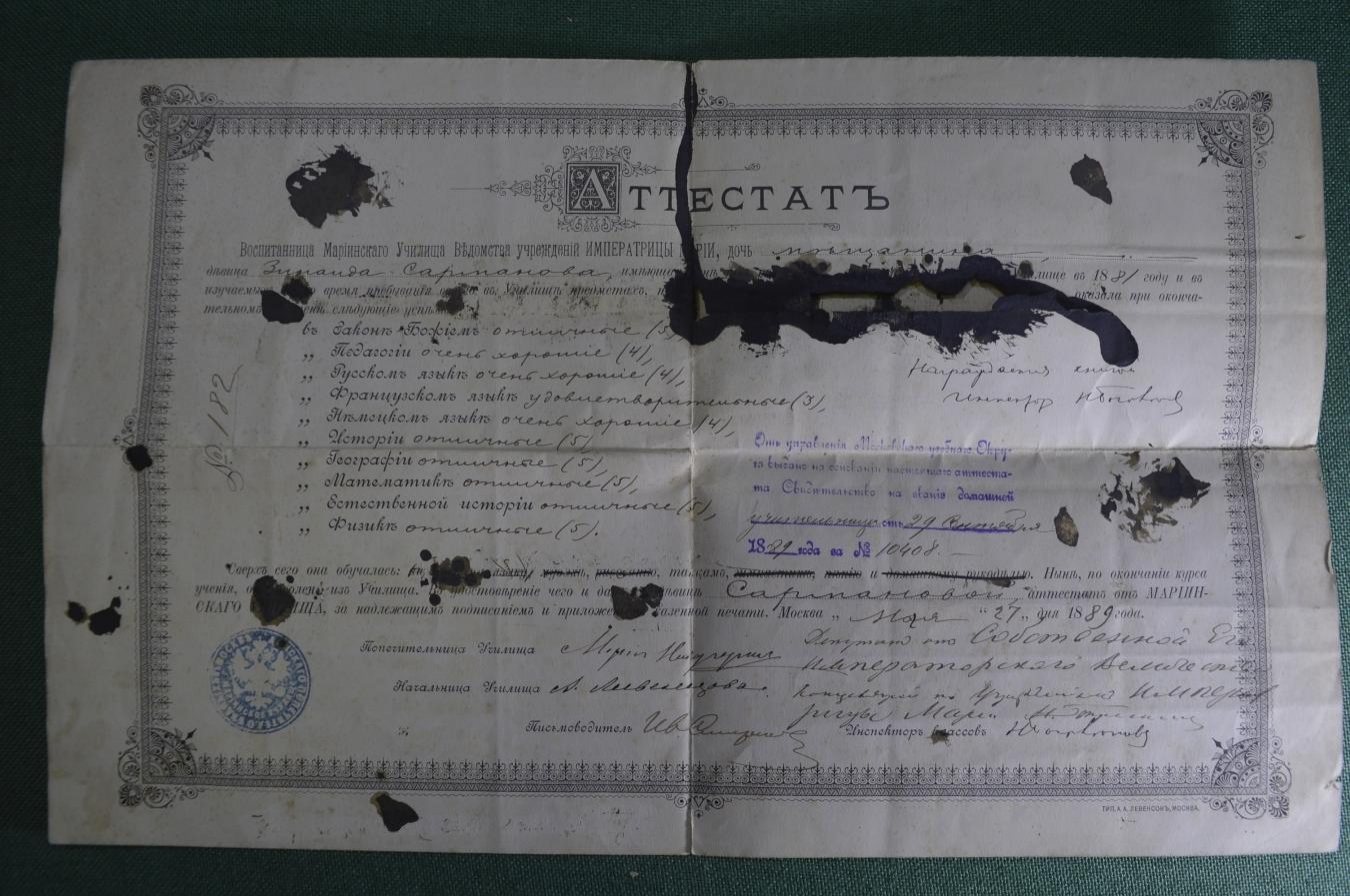 АТТЕСТАТЪ
Воспитанница Маріинскаго Училища Вѣдомства учрежденій ИМПЕРАТРИЦЫ МАРІИ, дочь мѣщанина
дѣвица Зинаида Сарманова, имѣющая въ 1881 году и въ
время пребыванія въ Училищѣ предметахъ, оказала при оконча-
тельномъ слѣдующіе
въ Законѣ Божіемъ отличные (5),
„ Педагогіи очень хорошіе (4),
„ Русскомъ языкѣ очень хорошіе (4),
„ Французскомъ языкѣ удовлетворительные (3),
„ Нѣмецкомъ языкѣ очень хорошіе (4),
„ Исторіи отличные (5),
„ Географіи отличные (5),
„ Математикѣ отличные (5),
„ Естественной исторіи отличные (5),
„ Физикѣ отличные (5).
№ 182
Награждена книгою
Инспекторъ
Отъ управленія Московскаго учебнаго Окру-
га выдано на основаніи настоящаго аттеста-
та Свидѣтельство на званіе домашней
учительницы отъ 29 Сентября
1889 года за № 10408.
Сверхъ сего она обучалась: танцамъ, пѣнію и домашнимъ рукодѣлью. Нынѣ, по окончаніи курса
ученія, изъ Училища. чего и Сармановой, аттестатъ отъ МАРІИН-
СКАГО УЧИЛИЩА, за надлежащимъ подписаніемъ и приложеніемъ казенной печати. Москва „ Мая “ 27 „ дня 1889 года.
Попечительница Училища Марія
Начальница Училища А.
Письмоводитель Ив
Депутатъ отъ Собственной Его
Императорскаго Величества
Канцеляріи по Учрежденіямъ Императ
рицы Маріи
Инспекторъ классовъ
ТИП. А. А. ЛЕВЕНСОНЪ, МОСКВА.